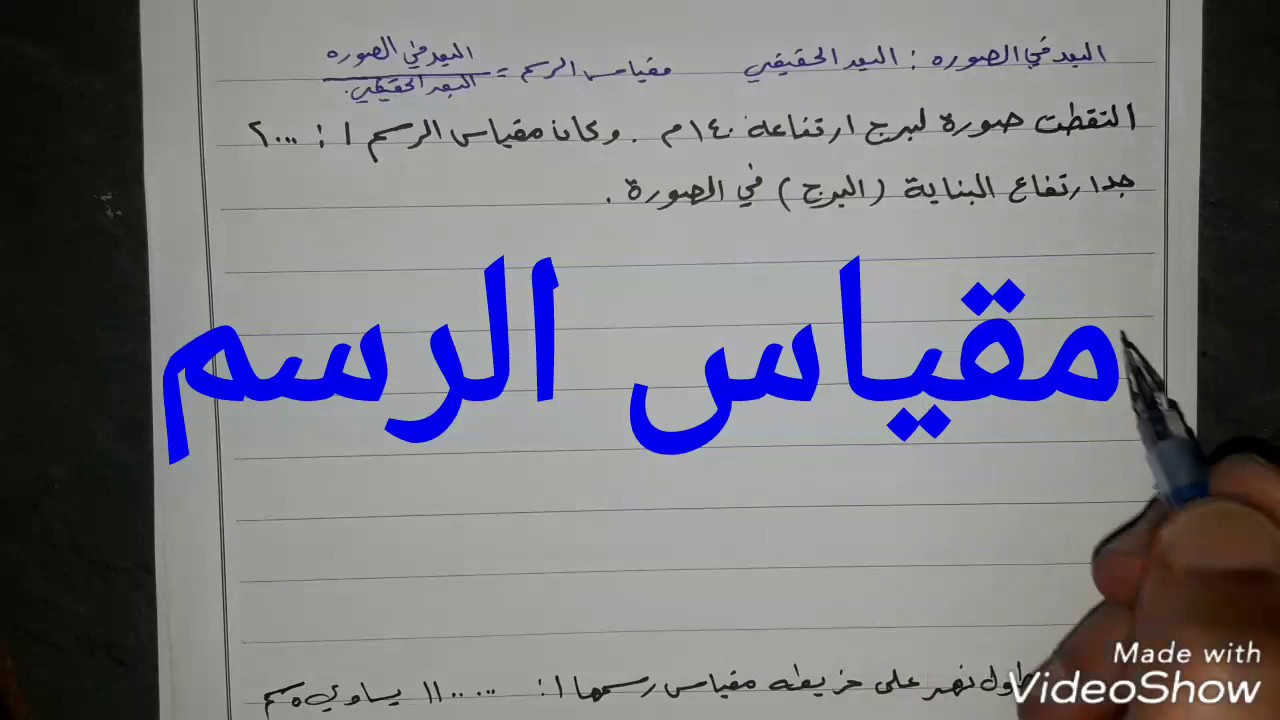 البعد في الصوره : البعد الحقيقي مقياس الرسم = البعد في الصوره / البعد الحقيقي.
التقطت صورة لبرج ارتفاعه ١٤٠م . وكان مقياس الرسم ١ : ٢٠٠٠
جد ارتفاع البناية (البرج) في الصورة .
مقياس الرسم
طول نهر على خريطه مقياس رسمها ١ : يساوي ٥سم
Made with
VideoShow